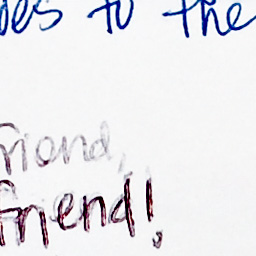 oes to the
friend,
friend!